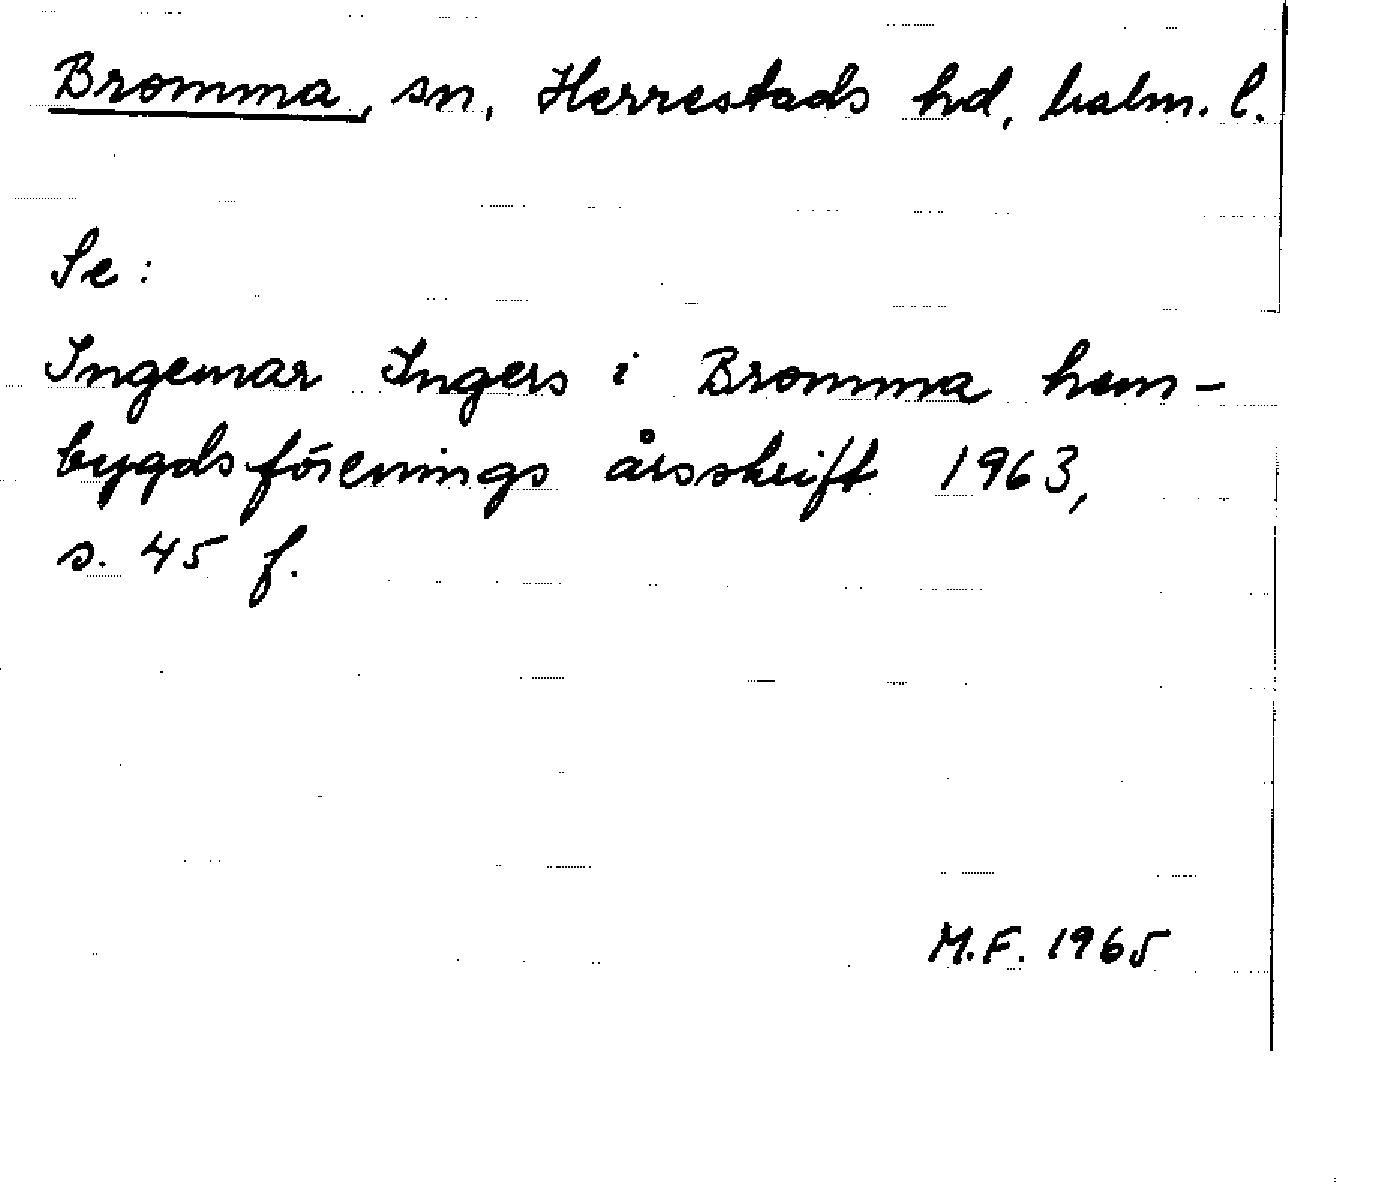 Bromma, sn, Herrestads hd, halm. l.
Se:
Ingemar Ingers i Bromma hem-
bygdsförenings årsskrift 1963,
s. 45 f.
M.F. 1965